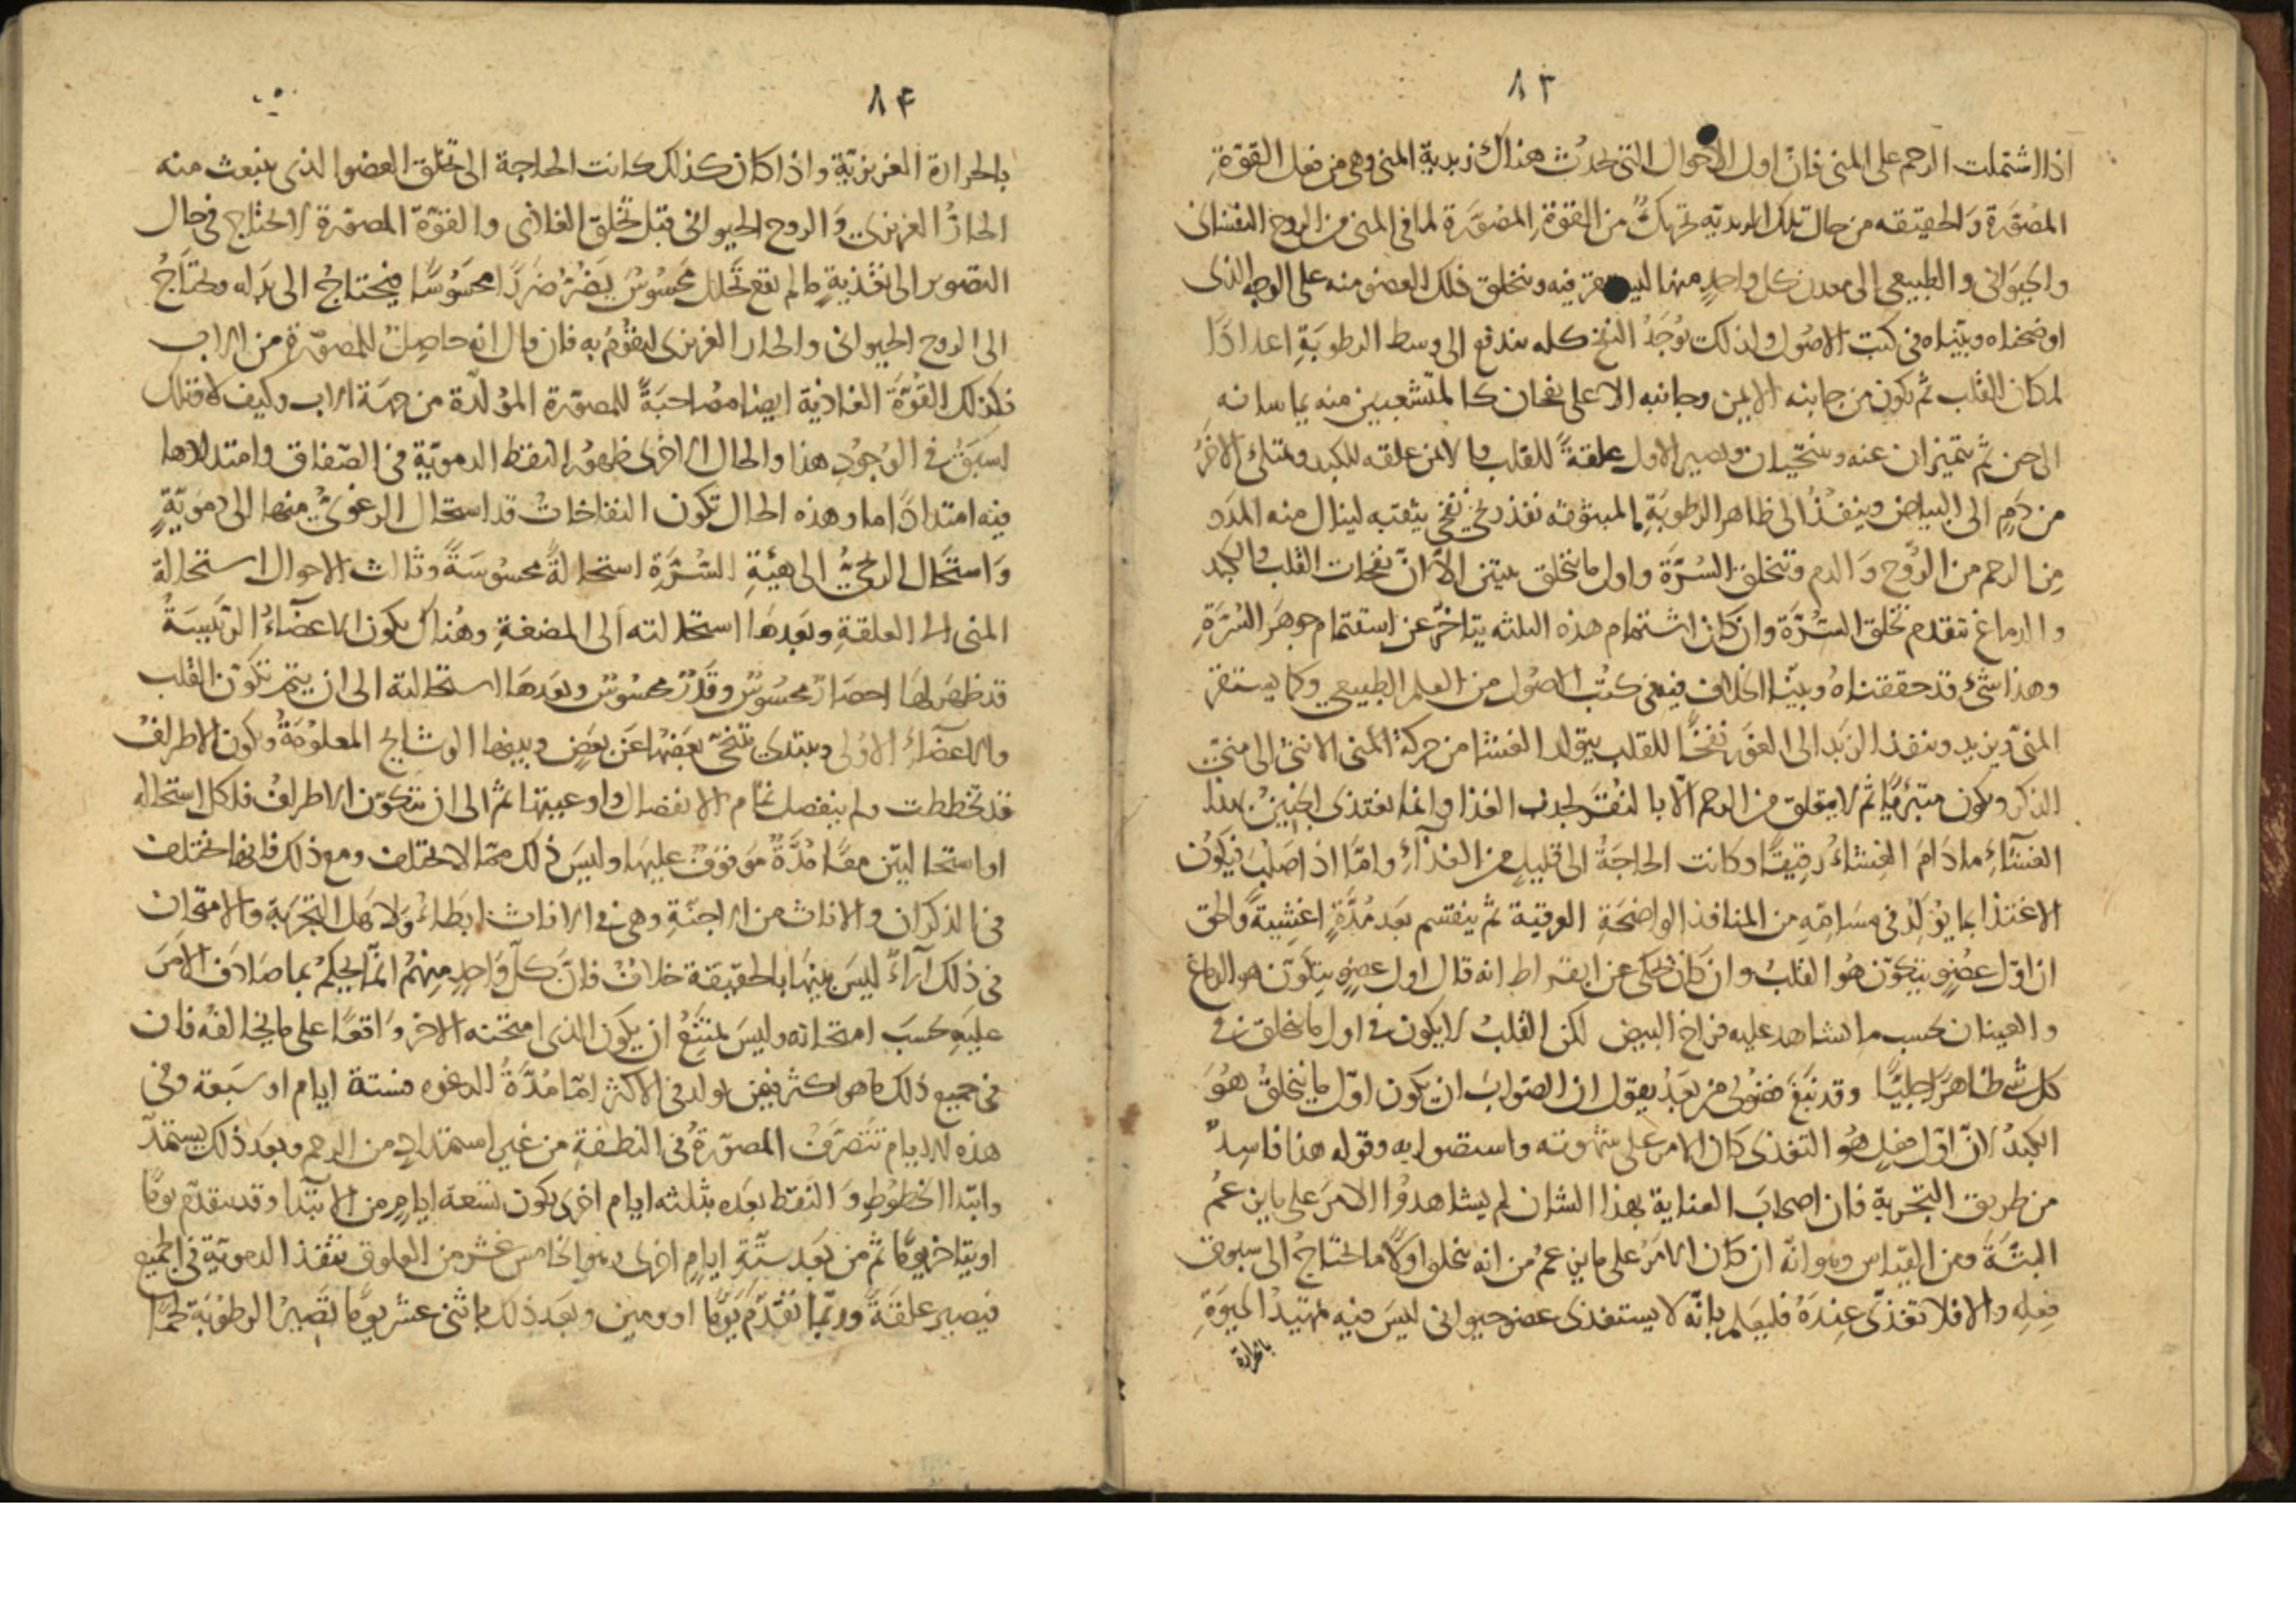 ٨٣
اذا اشتملت الرحم على المنى فانّ اول الاحوال التى تحدُث هناك زبدية المنى وهى من فعل القوّةِ
المصَوّرَة وَالحقيقه من حال تلك الزبديّه تحريكٌ من القوّةِ المصَوّرَة لما فى المنى من الروح النفسانى
والحيَوانى والطبيعى الى معدن كل واحدٍ منها ليستقر فيه ويتخلق ذلك العضو منه على الوجه الذى
اوضحناه وبيّناه فى كتب الاصُول ولذلك يُوجَدُ النفخ كله يندفع الى وسط الرطوبَةِ اعدادًا
لمكان القلب ثم يكون من جانبه الايمن وجانبه الاعلى نفخان كالمتشعبين منه يماسانه
الى حين ثم يتميزان عنه ويتنحيان ويصير الاول علقةً للقلب والايمن علقه للكبد ويمتلئ الاخَرُ
من دَمٍ الى البياض وينفُذُ الى ظاهر الرطوبَةِ المبثوثه نفذ ريحى نفخى يثقبه لينال منه المدَد
مِن الرحم من الرُوح وَالدم وتتخلق السُرَّة واول ما يتخلق يبين الّا انّ نفخات القلب والكبد
والدماغ تتقدم تخلق السُرَّة وان كان استتمام هذه الثلثه يتاخرّ عن استتمام جوهَر السُرَّةِ
وهذا شئ قد حققناهُ وبيّنا الخلاف فيه فى كتُب الاصُول من العلم الطبيعى وكما يستقرّ
المنى يزبد وينفذ الزبَد الى الغَور نفخًا للقلب يتولد الغشا من حركة المنى الانثىُ الى منىّ
الذكر ويكون متبرّيًا ثم لا يتعلق من الرحم الّا بالنُقَر لجذب الغذا وانما يغتذى الجَنينُ بهذا
الغشَاءِ ما دَامَ الغِشاءُ رقيقًا وكانت الحاجَةُ الى قليلٍ من الغذآءِ وامّا اذا صَلُبَ فيكُون
الاغتذا بما يَولّدَ فى مسَامّهِ من المنافذ الواضحَةِ العرقية ثم ينقسم بعَد مُدَّةٍ اغشيةً والحق
ان اوّل عضوٍ يتكوّن هُو القلبُ وان كان يُحكى عن ابقراط انه قال اول عضوٍ يتكوّن هو الدماغ
والعينان بحسب ما يشاهد عليه فراخ البيض لكن القلبُ لا يكون فى اول ما يتخلق فى
كل شئ ظاهرًا جليًّا وقد نَبَغَ فضُولى من بعَدُ يقول ان الصَوابَ ان يكون اوّل ما يتخلقُ هُوَ
الكبَدُ لانّ اوّل فعلٍ هُو التغذى كان الامر على شهوته واستصوابه وقوله هذا فاسِدٌ
من طريق التجربة فان اصحاب العناية بهذا الشان لم يشاهدُوا الامرَ على ما يزعمُ
البتّةً ومن القياس وهو انه ان كان الامرُ على ما يزعمُ من انه يخلق اوّلًا ما تحتاجُ الى سبوق
فِعلِه والا فلا تغذّى عِندَهُ فليعَلم بانّه لا يستغذى عضو حيوانى ليسَ فيه تمهيدُ الحيَوَةِ
بالحرارة
٨٤
بالحرارة الغريزيّة واذا كان كذلك كانت الحاجة الى تخلّق العضو الذى ينبعث منه
الحارُّ الغريزى وَالروح الحيوانى قبل تخلق الغاذى والقوّة المصوّرة لا تحتاج فى حال
التصوير الى تغذيةٍ ما لم يقع تحَلل محسُوسٌ يَضُرُّ ضَررًا محسَوسًا فيحتاجُ الى بَدَله ويحتَاجُ
الى الروح الحيوانى والحار الغريزى ليقومُ به فان قال انه حاصِلٌ للمصوّرة من الاب
فكذلك القوّةَ الغاذية ايضا مصاحبَةً للمصوّرة المؤلدّة من جهَة الاب وكيف لا وتلك
اسبَقُ فى الوجُودِ هذا والحال الاخرى ظهورُ النقط الدمويّةِ فى الصفاق وامتدادها
فيه امتدادًا ما وهذه الحال تكون النفاخاتُ قد استحال الرغوىُّ منها الى دمَويّةٍ
وَاستحَال الريحىُّ الى هيئَةِ السُّرَّةِ استحالةً محسُوسَةً وثالث الاحوال استحالة
المنى الى العلقةِ وبَعدهَا استحالته الى المضغةِ وهُناك يكون الاعضاءُ الرئيسَةُ
قد ظهَر لها انحصارٌ محسُوسٌ وقَدْرٌ محسُوسٌ وبعَدهَا استحالته الى ان يتم تكوّن القلب
والاعضَاءُ الاوُلى ويبتدئ تنحى بعَضُهاعَن بعَضٍ وبينها الوشايج المعلوُمَةُ ويكون الاطرافُ
قد تخططت ولم ينفصل تمام الانفصال واوعيتها ثم الى ان يتكوّن الاطرافُ فلكل استحاله
او استحالتين معًا مُدَّةٌ موقوفٌ عليها وليَسَ ذلك ممّا لا يختلف ومع ذلك فانها تختلف
فى الذكران والاناث من الاجنّةِ وهى فى الاناث ابَطاءُ ولاهَل التجربَة والامتحان
فى ذلك آرآءٌ ليسَ بينهَا بالحقيقة خلافٌ فانَّ كلّ وَاحدٍ مِنهُمْ انّما يحكم بما صَادَفَ الامَرَ
عليهِ بحسَب امتحانه وليسَ يمتنَعُ ان يكون الذى امتحنه الاخر وَاقعًا على ما يخالفُه فان
فى جميع ذلك ما هو اكثرىّ فيمن يولد فى الاكثر امّا مُدَّةُ الرغوه فستة ايام او سَبعة وفى
هذه الايام تَتصَرفُ المصوّرة فى النطفةِ من غير استمدادٍ من الرحم وبعَدَ ذلك يستمدّ
وابتدا الخطوُطِ وَالنقط بعَده بثلثه ايام اخرى يكون تسَعة ايامٍ من الابتدا وقد يتقدّم يومًا
او يتاخر يومًا ثم من بَعَد ستّةِ ايامٍ اخرى وهو الخامس عشر من العلوق تنفذ الدمويّة فى الجميع
فيصير علقَةً وربّما تقدّم يَومًا او يومين وبعَد ذلك باثنى عشر يومًا تصَيرُ الرطوبَة لحمًا